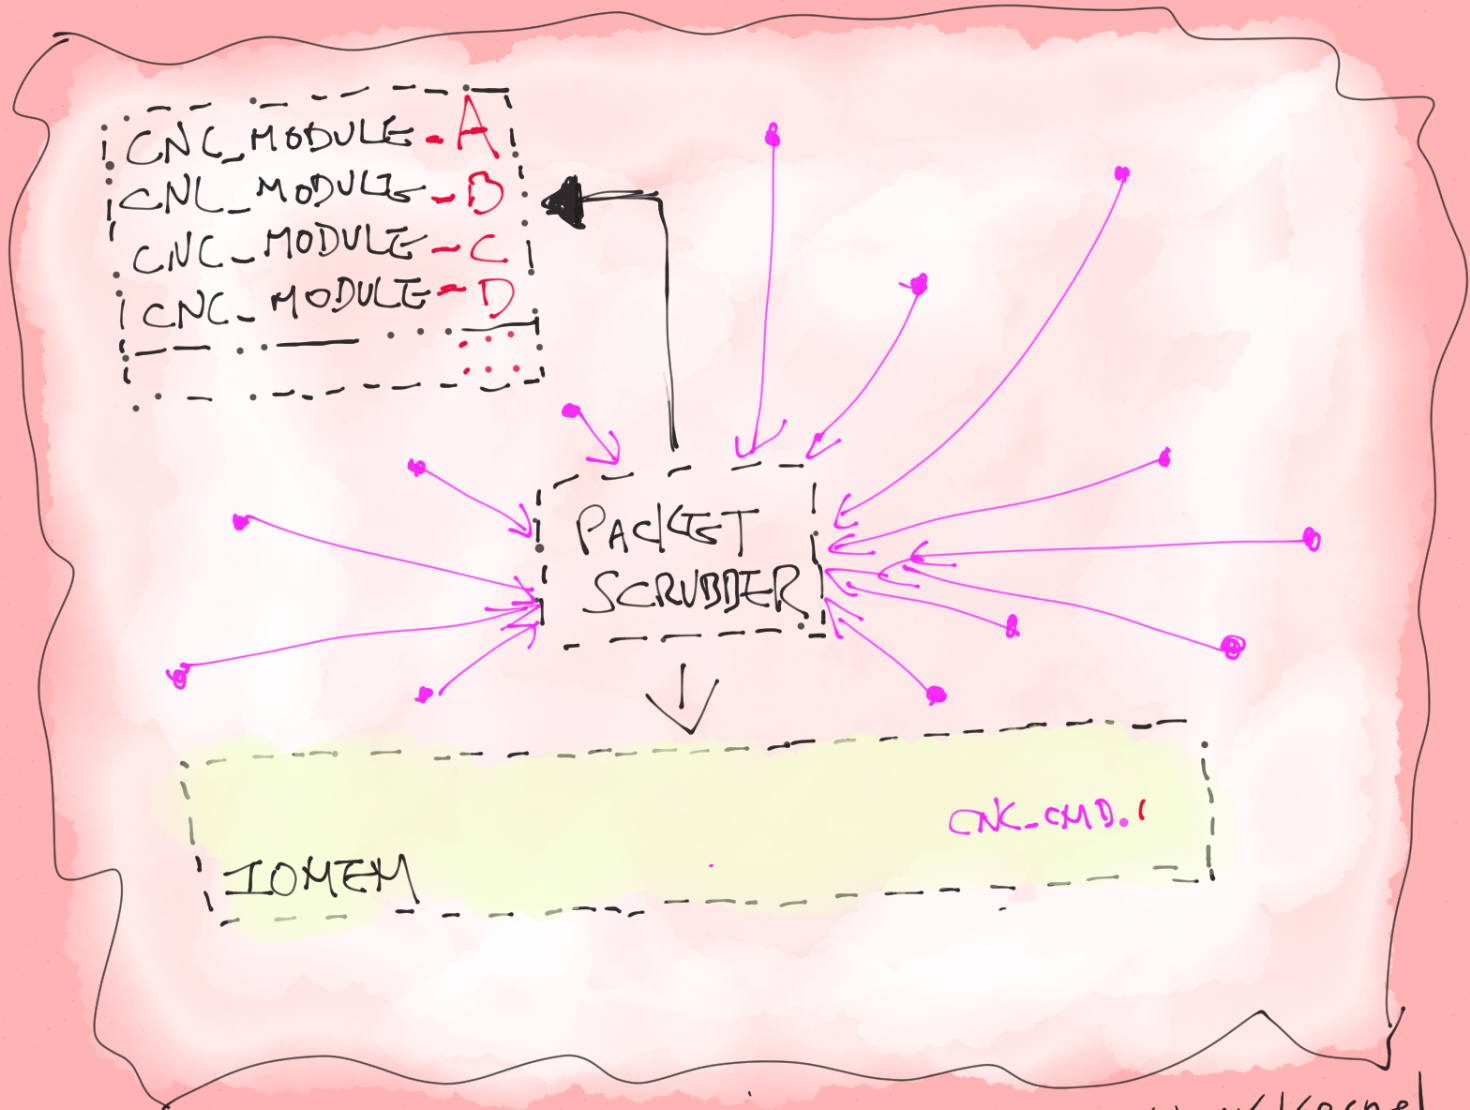 CNC_MODULE-A
CNC_MODULE-B
CNC_MODULE-C
CNC_MODULE-D
PACKET
SCRUBBER
CNC_CMD.
IOMEM